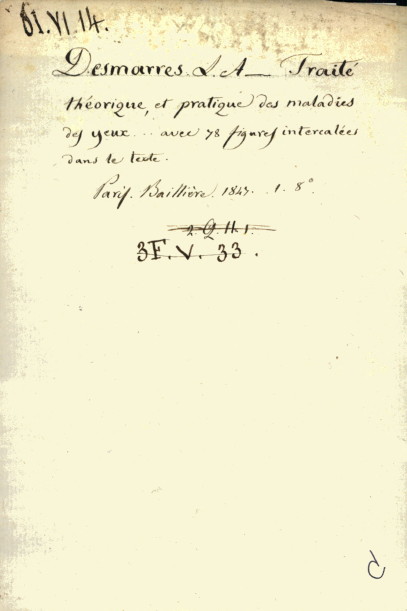 61.VI.14.
Desmarres. L. A — Traité
théorique, et pratique des maladies
des yeux ... avec 78 figures intercalées
dans le texte.
Paris. Baillière. 1847. 1. 8°.
2. Q. H. 1.
3F. V. 33.